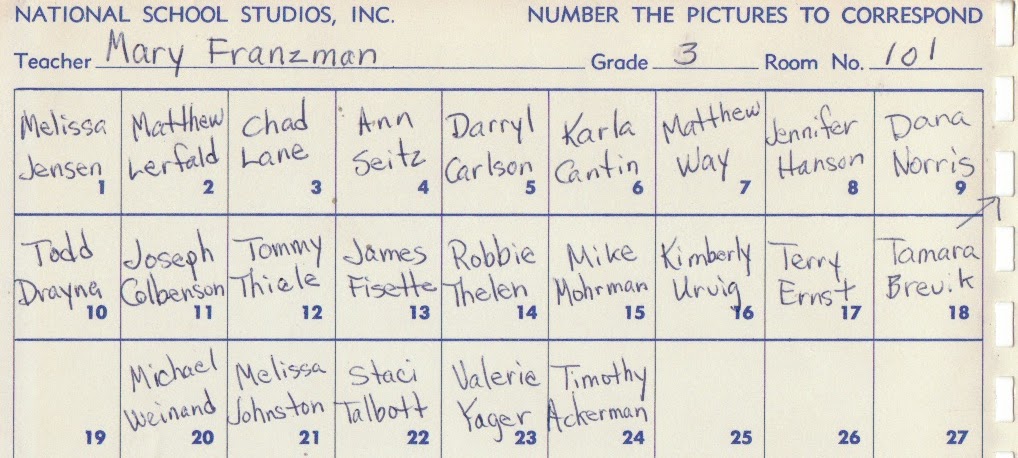 NATIONAL SCHOOL STUDIOS, INC. NUMBER THE PICTURES TO CORRESPOND
Teacher Mary Franzman Grade 3 Room No. 101
Melissa Jensen 1
Matthew Lerfald 2
Chad Lane 3
Ann Seitz 4
Darryl Carlson 5
Karla Cantin 6
Matthew Way 7
Jennifer Hanson 8
Dana Norris 9
Todd Drayna 10
Joseph Colbenson 11
Tommy Thiele 12
James Fisette 13
Robbie Thelen 14
Mike Mohrman 15
Kimberly Urvig 16
Terry Ernst 17
Tamara Brevik 18
19
Michael Weinand 20
Melissa Johnston 21
Staci Talbott 22
Valerie Yager 23
Timothy Ackerman 24
25
26
27